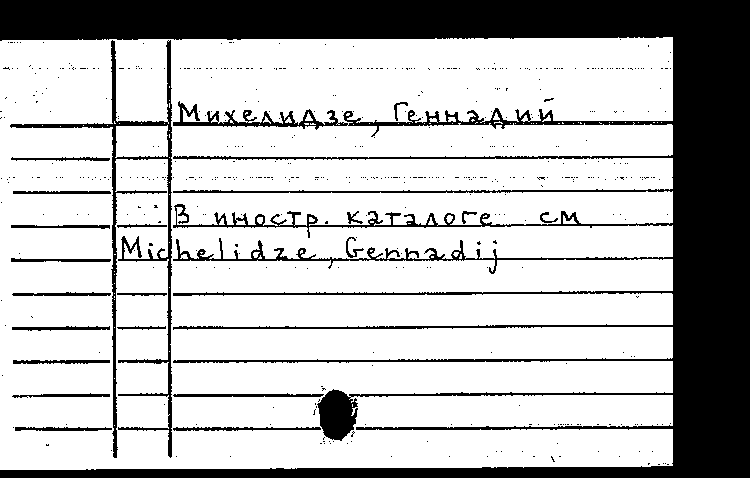 Михелидзе, Геннадий
В иностр. каталоге см
Michelidze, Gennadij